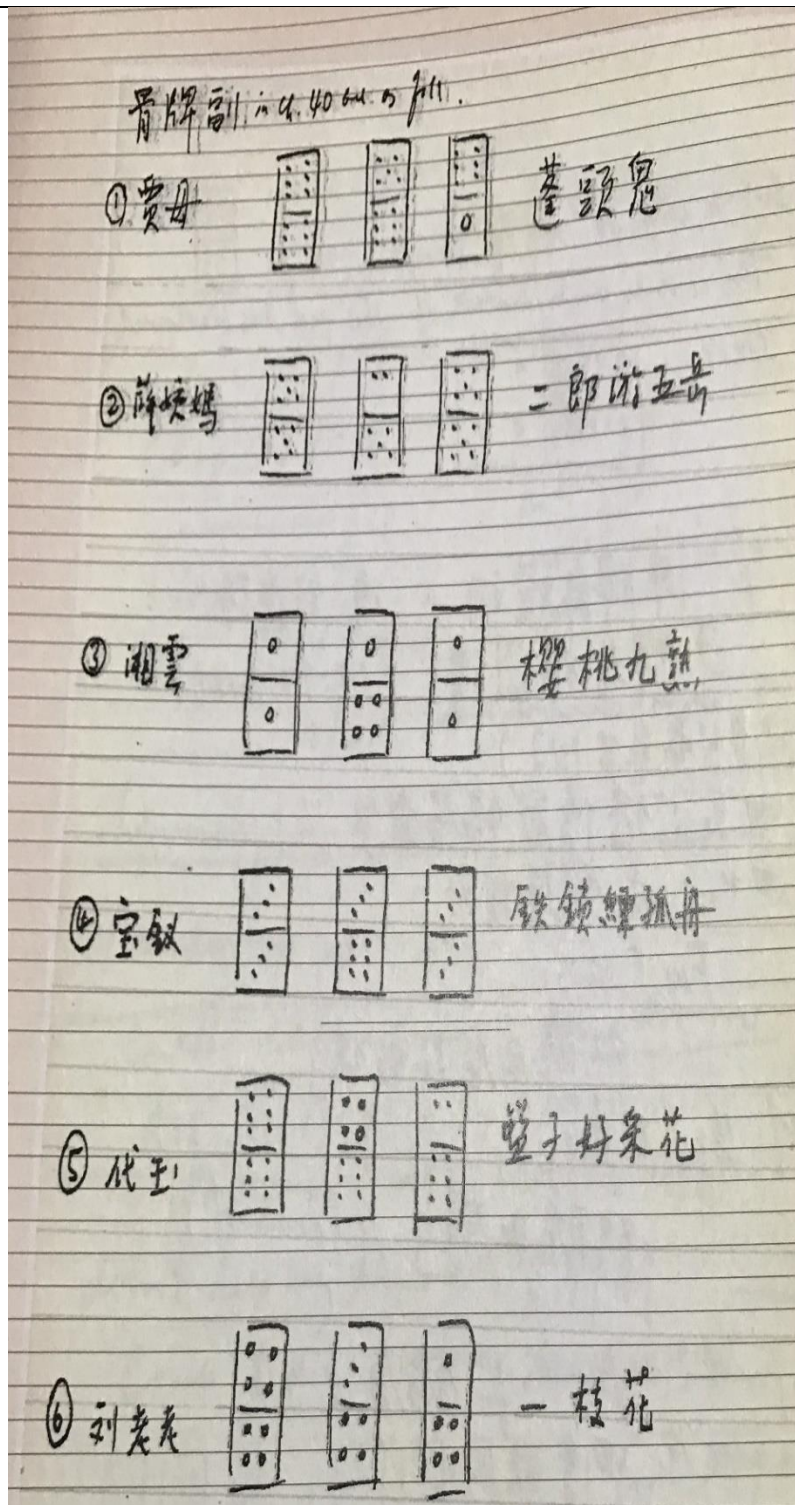 骨牌副 in ch. 40
①賈母 蓬頭鬼
②薛姨媽 二郎游五岳
③湘雲 櫻桃九熟
④宝釵 鉄鎖練孤舟
⑤代玉 籃子好采花
⑥刘老老 一枝花